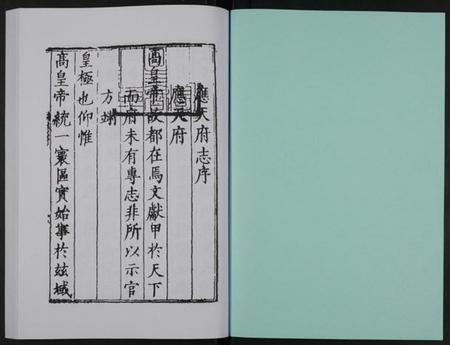 應天府志序
應天府
高皇帝故都在焉文獻甲於天下
而府未有專志非所以示官
方
皇極也仰惟
高皇帝統一寰區實始事於兹域